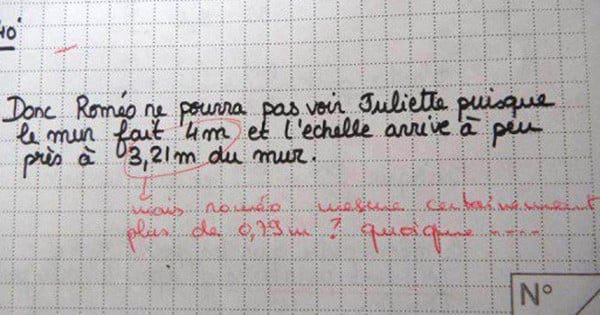 10'
Donc Roméo ne pourra pas voir Juliette puisque
le mur fait 4m et l'echelle arrive à peu
près à 3,21m du mur.
mais roméo mesure certainement
plus de 0,79m ? quoique ----
N°